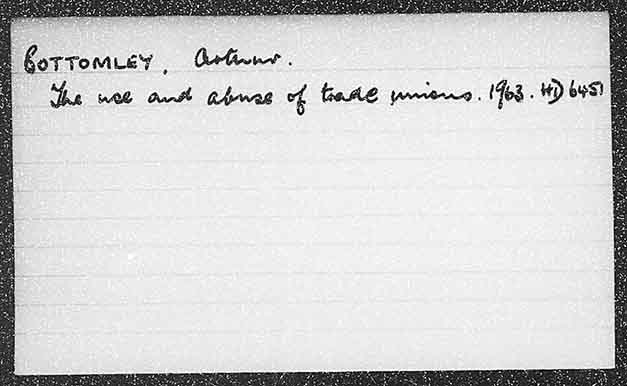 BOTTOMLEY, Arthur.
The use and abuse of trade unions. 1963. HD 6451